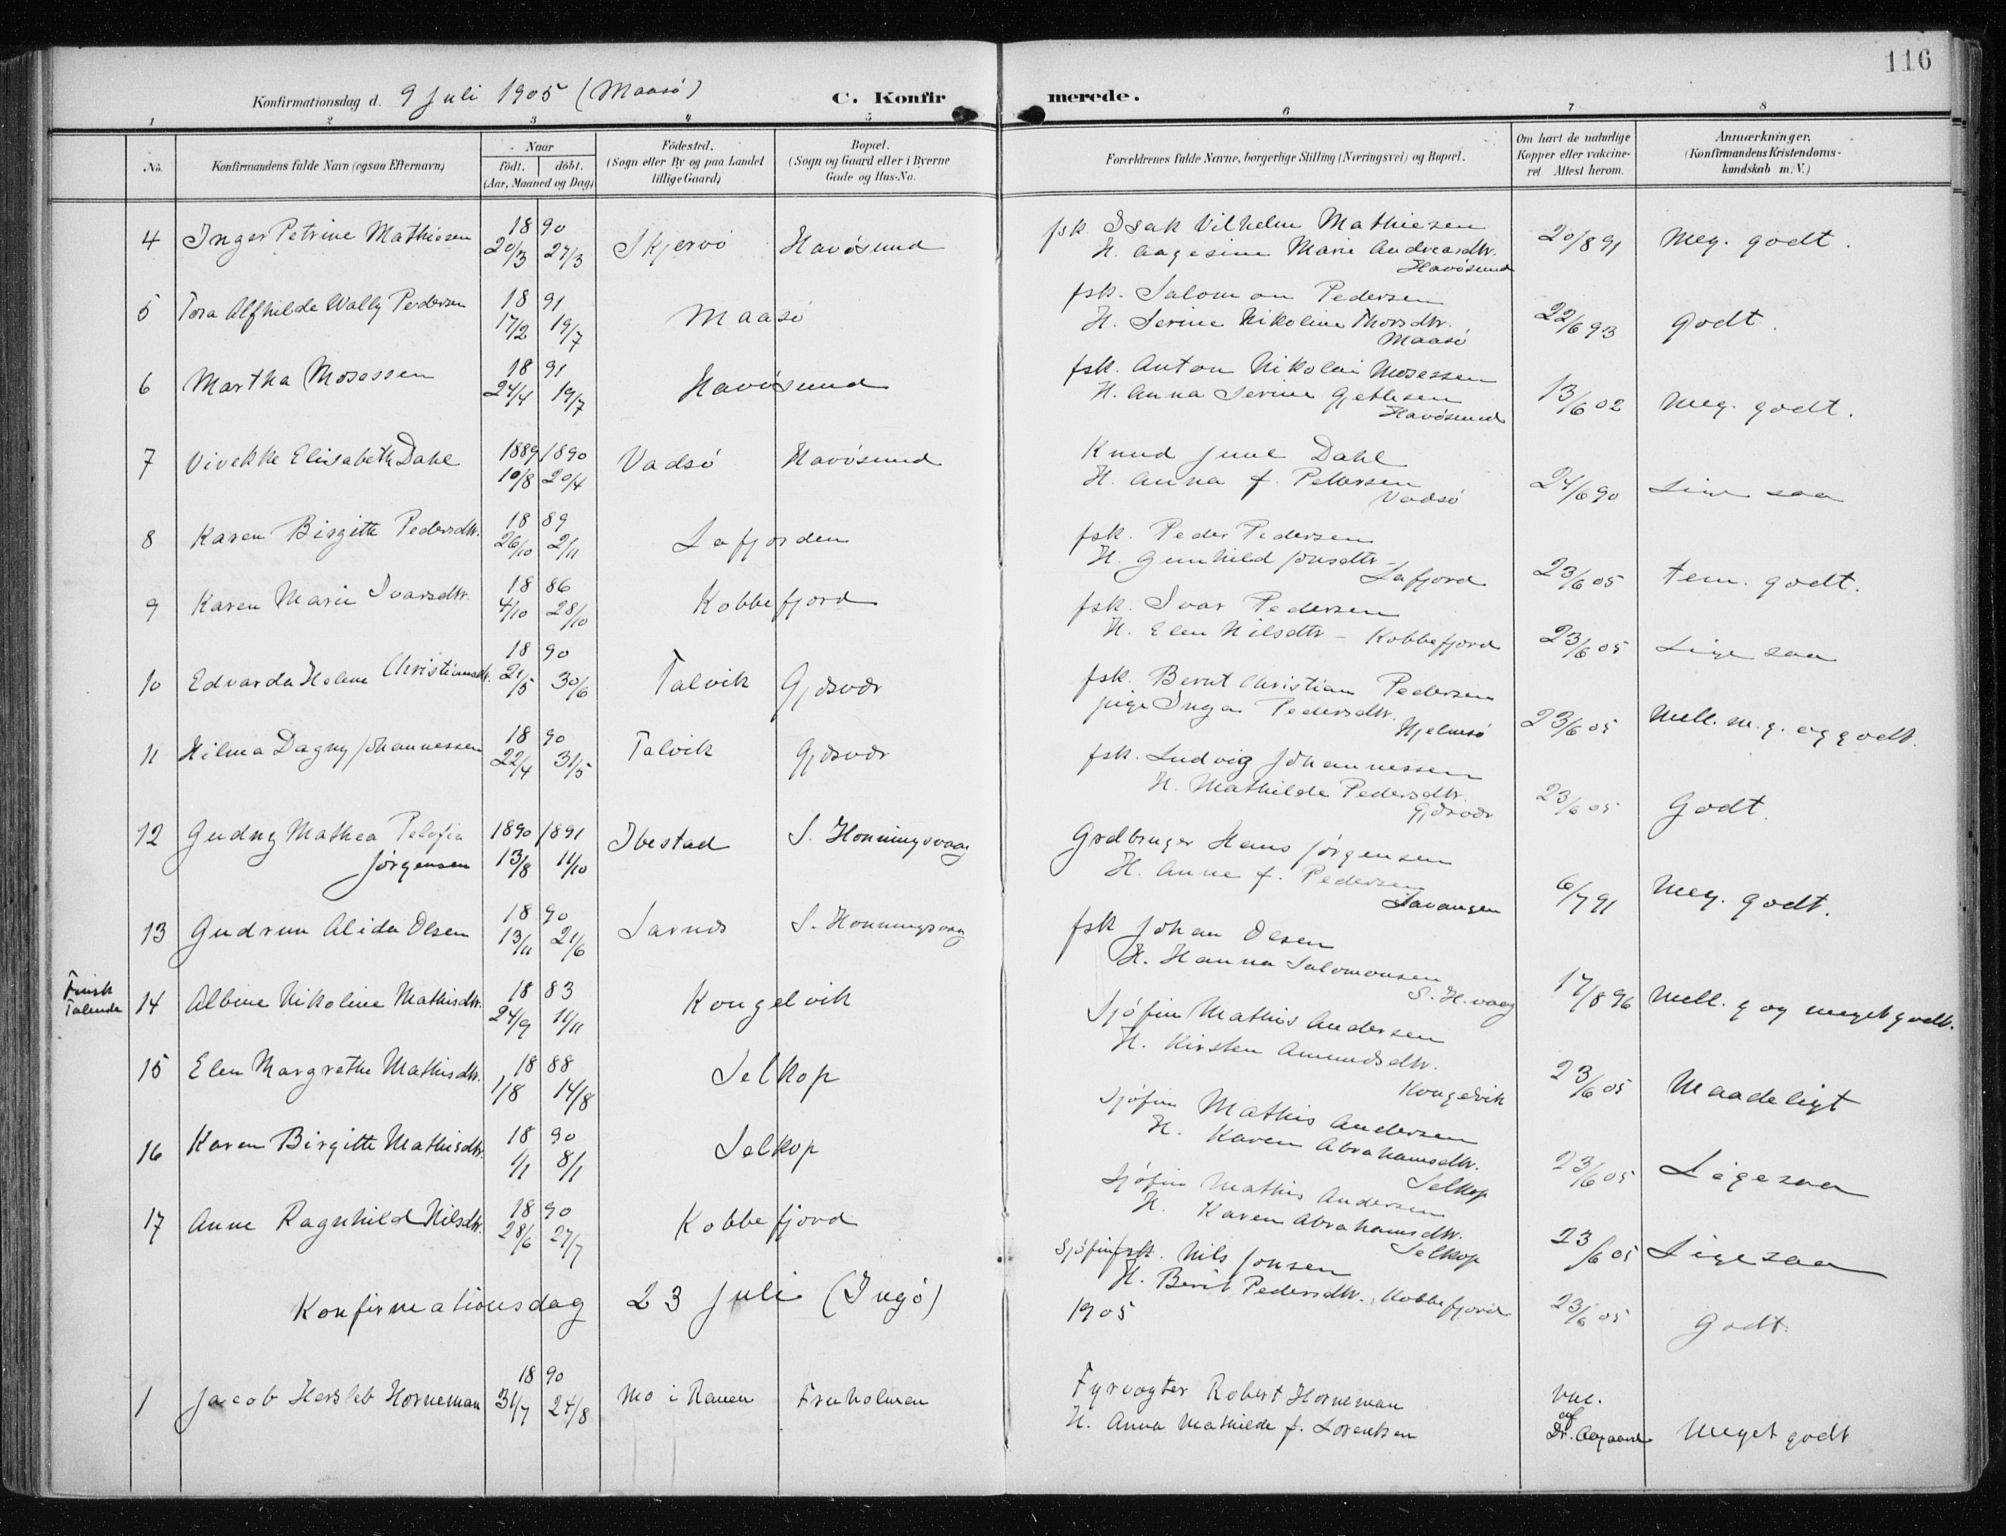 116
Konfirmationsdag d. 9 Juli 1905 (Maasö) C. Konfir merede.
1 2 3 4 5 6 7 8
No. Konfirmandens fulde Navn (ogsaa Efternavn) Naar födt. döbt. (Aar, Maaned og Dag) Födested. (Sogn eller By og paa Landet tillige Gaard) Bopæl. (Sogn og Gaard eller i Byerne Gade og Hus-No. Forældrenes fulde Navne, borgerlige Stilling (Næringsvei) og Bopæl. Om havt de naturlige Kopper eller vakcineret Attest herom. Anmærkninger. (Konfirmandens Kristendomskundskab m. V.)
4 Inger Petrine Mathiesen 1890 20/3 27/3 Skjervö Havösund fsk. Isak Vilhelm Mathiesen
H. Aagesine Marie Andreasdtr. Havösund 20/8 91 Meg. godt.
5 Tora Alfhilde Wally Pedersen 1891 17/2 19/7 Maasö fsk. Salomon Pedersen
H. Serine Nikoline Thorsdtr. Maasö 22/6 93 Godt.
6 Martha Mosessen 1891 24/4 19/7 Havösund fsk. Anton Nikolai Mosessen
H. Anna Serine Havösund 13/6 02 Meg. godt.
7 Vivekke Elisabeth Dahl 1889/1890 10/8 20/4 Vadsö Havösund Knud Juul Dahl
H. Anna f. Pettersen Vadsö 24/6 90 Lige saa
8 Karen Birgitte Pedersdtr. 1889 26/10 2/11 Lafjorden fsk. Peder Pedersen
H. Gunhild Jonsdtr. Lafjord 23/6 05 Tem. godt.
9 Karen Marie Ivarsdtr. 1886 4/10 28/10 Kobbefjord fsk. Ivar Pedersen
H. Elen Nilsdtr - Kobbefjord 23/6 05 Lige saa
10 Edvarda Helene Christiansdtr. 1890 21/5 30/6 Talvik Gjæsvær fsk. Bernt Christian Pedersen
pige Inga Pedersdtr. Hjelmsö 23/6 05 Mell. m. g. og godt.
11 Hilma Dagny Johannessen 1890 22/4 31/5 Talvik Gjæsvær fsk. Ludvig Johannessen
H. Mathilde Pedersdtr. Gjæsvær 23/6 05 Godt.
12 Gudny Mathea Pelofia Jörgensen 1890/1891 13/8 11/10 Ibestad S. Honningsvaag Grdbruger Hans Jörgensen
H. Anne f. Pedersen Lavangen 6/7 91 Meg. godt.
13 Gudrun Alida Olsen 1890 13/11 21/6 Sarnæs S. Honningsvaag fsk Johan Olsen
H. Hanna Salomonsen S. H.vaag 17/8 96 Mell. g og meget godt.
Finsk Talende 14 Albine Nikoline Mathisdtr. 1883 24/9 11/11 Kongelvik Sjöfin Mathis Andersen
H. Kirsten Amundsdtr. Kongelvik 23/6 05 Maadeligt
15 Elen Margrethe Mathisdtr. 1888 1/8 14/8 Selkop Sjöfin Mathis Andersen
H. Karen Abrahamsdtr. Selkop 23/6 05 Ligesaa
16 Karen Birgitte Mathisdtr. 1890 1/1 8/1 Selkop Sjöfin Mathis Andersen
H. Karen Abrahamsdtr. Selkop 23/6 05 Ligesaa
17 Anne Ragnhild Nilsdtr. 1890 28/6 27/7 Kobbefjord Sjöfin fsk. Nils Jonsen
H. Berit Pedersdtr. Kobbefjord 23/6 05 Godt.
Konfirmationsdag 23 Juli (Ingö) 1905
1 Jacob Hersleb Horneman 1890 31/7 24/8 Mo i Ranen Fruholmen Fyrvogter Robert Horneman
H. Anna Mathilde f. Lorentsen vac. af Dr. Aagaard Meget godt